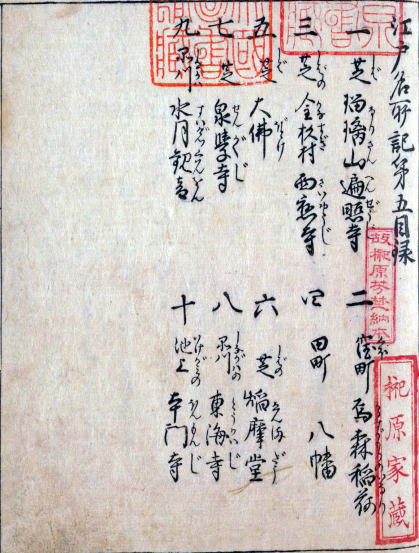 江戸名所記第五目録
一 芝 瑠璃山遍照寺 二 窪町 烏森稲荷
三 芝 金杉村 西應寺 四 田町 八幡
五 芝 大佛 六 芝 焔摩堂
七 芝 泉學寺 八 品川 東海寺
九 品川 水月観音 十 池上 本門寺
故榊原芳埜納本
榊原家藏